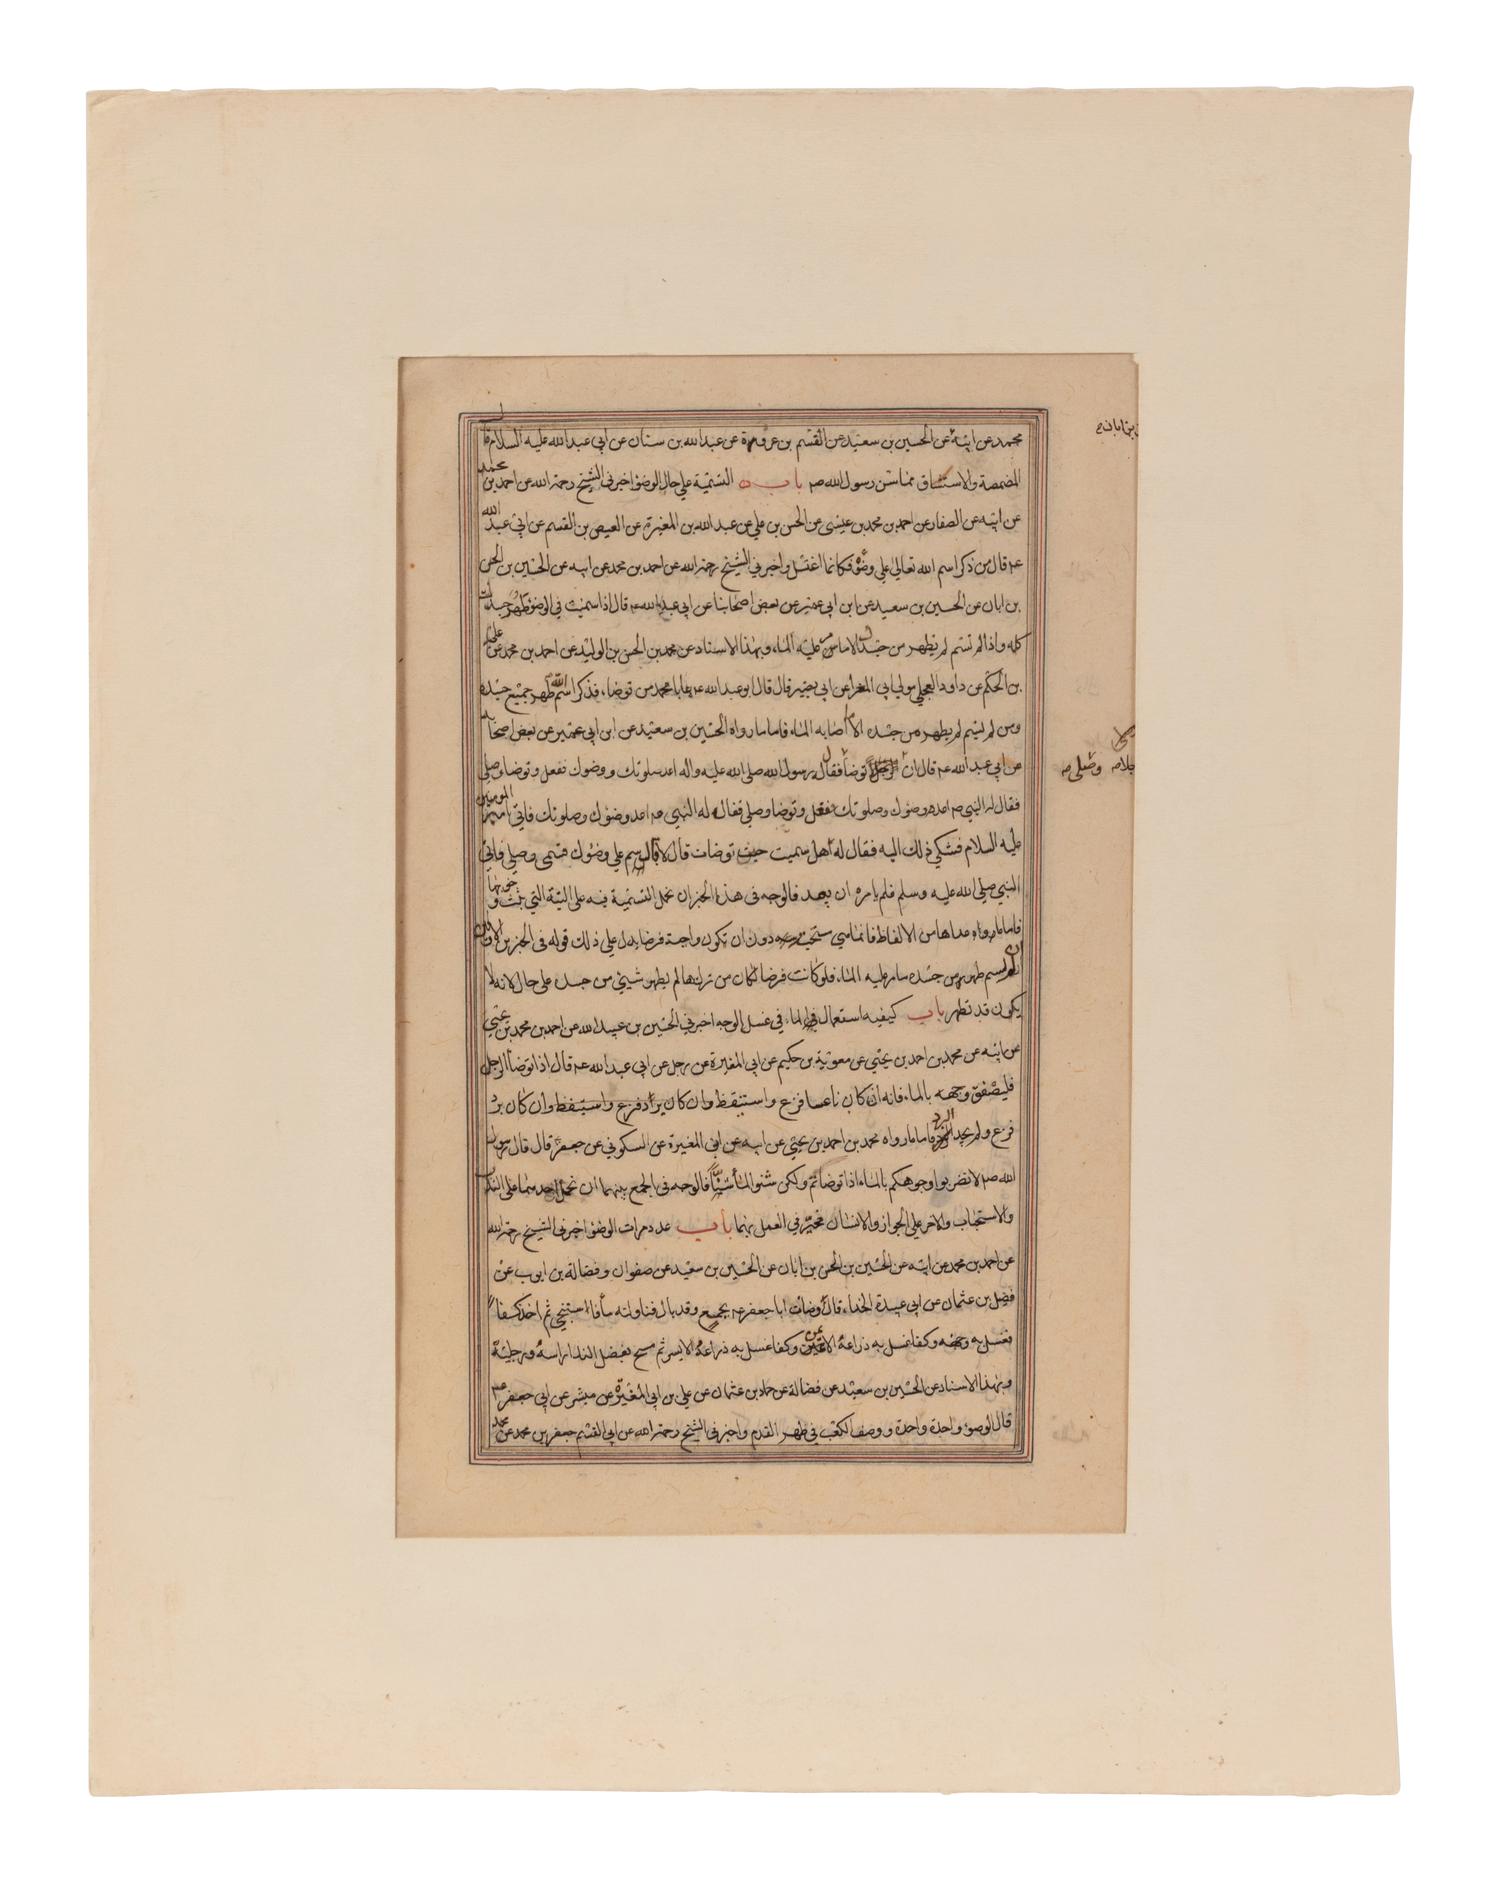 محمد عن ابيه عن الحسين بن سعيد عن القسم بن عروة عن عبدالله بن سنان عن ابي عبدالله عليه السلام قال
المضمضة والاستنشاق مما سن رسول الله صم باب التسمية علي حال الوضوء اخبرني الشيخ رحمه الله عن احمد بن محمد
عن ابيه عن الصفار عن احمد بن محمد بن عيسى عن الحسن بن علي عن عبدالله بن المغيرة عن العيص بن القسم عن ابي عبدالله
عم قال من ذكر اسم الله تعالى علي وضوئه فكانما اغتسل واخبرني الشيخ رحمه الله عن احمد بن محمد عن ابيه عن الحسين بن الحسن
بن ابان عن الحسين بن سعيد عن ابن ابي عمير عن بعض اصحابنا عن ابي عبدالله عم قال اذا سميت في الوضوء طهر جسدك
كله واذا لم تسم لم يطهر من جسدك الا ما مر عليه الماء وبهذا الاسناد عن محمد بن الحسن بن الوليد عن احمد بن محمد عن علي
بن الحكم عن داود العجلي مولي ابي المغرا عن ابي بصير قال قال ابو عبدالله عم يا با محمد من توضاء فذكر اسم الله طهر جميع جسده
ومن لم يسم لم يطهر من جسده الا ما اصابه الماء فاما ما رواه الحسين بن سعيد عن ابن ابي عمير عن بعض اصحابنا
عن ابي عبدالله عم قال ان رجلا توضا فقال رسول الله صلى الله عليه واله اعد صلوتك ووضوك ففعل وتوضا وصلي
فقال له النبي صم اعد وضوك وصلوتك ففعل وتوضا وصلي فقال له النبي صم اعد وضوئك وصلوتك فاتي امير المومنين
عليه السلام فشكي ذلك اليه فقال له هل سميت حيث توضات قال لا قال سم علي وضوئك فسمى وصلي فاتي
النبي صلى الله عليه وسلم فلم يامره ان يعد فالوجه في هذا الخبر ان نحمل التسمية فيه على النية التي ثبت وجوبها
فاما ما رواه عداها من الالفاظ فانما هي مستحبة دون ان يكون واجبة فرضا يدل علي ذلك قوله في الخبرين الاولين
ان لم يسم طهر من جسده ما مر عليه الماء فلو كانت فرضا لكان من تركها لم يطهر شيئ من جسده على حال لانه لا
يكون قد تطهر باب كيفيه استعمال الماء في غسل الوجه اخبرني الحسين بن عبيدالله عن احمد بن محمد بن يحيى
عن ابيه عن محمد بن احمد بن يحيي عن معوية بن حكيم عن ابي المغيرة عن رجل عن ابي عبدالله عم قال اذا توضأ الرجل
فليصفق وجهه بالماء فانه ان كان ناعسا فزع واستيقظ وان كان يراد فزع واستيقظ وان كان برد
فزع ولم يجد البرد فاما ما رواه محمد بن احمد بن يحيي عن ابيه عن ابي المغيرة عن السكوني عن جعفر قال قال رسول
الله صم لا تضربوا وجوهكم بالماء اذا توضاتم ولكن شنوا الماء شنا فالوجه في الجمع بينهما ان نحمل احدهما على الندب
والاستحباب والاخر علي الجواز والانسان مخير في العمل بهما باب عدد مرات الوضوء اخبرني الشيخ رحمه الله
عن احمد بن محمد عن ابيه عن الحسين بن الحسن بن ابان عن الحسين بن سعيد عن صفوان وفضالة بن ايوب عن
فضل بن عثمان عن ابي عبيدة الحذاء قال وضات ابا جعفر عم بجمع وقد بال فناولته ماء فاستنجي ثم اخذ كفا
فغسل به وجهه وكفا غسل به ذراعه الايمن وكفا غسل به ذراعه الايسر ثم مسح بفضل الندا راسه ورجليه
وبهذا الاسناد عن الحسين بن سعيد عن فضالة عن حماد بن عثمان عن علي بن ابي المغيرة عن ميسر عن ابي جعفر عم
قال الوضوء واحدة واحدة ووصف الكعب في ظهر القدم واخبرني الشيخ رحمه الله عن ابي القسم جعفر بن محمد عن محمد
بن ابان
وصلى